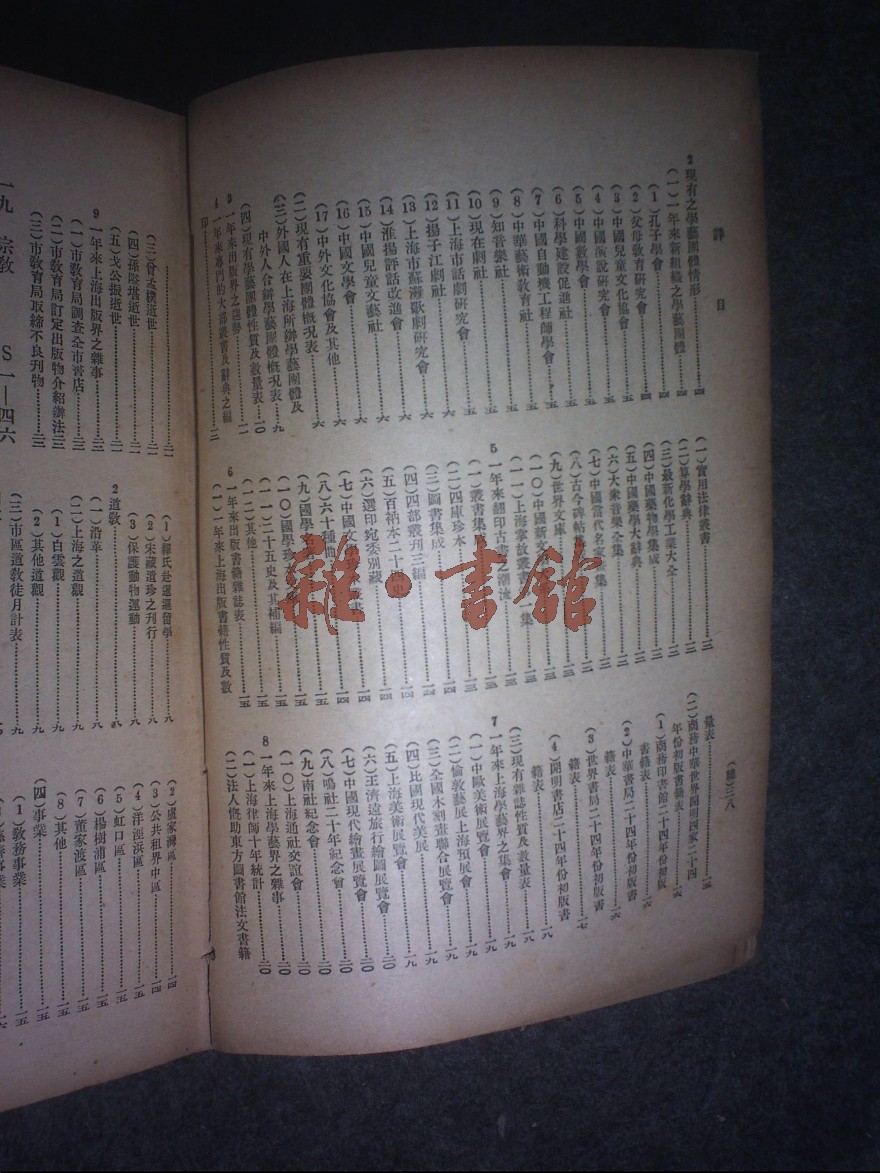 詳目
2現有之學藝團體情形……四
(一)一年來新組織之學藝團體……四
(1)孔子學會……四
(2)父母教育研究會……四
(3)中國兒童文化協會……四
(4)中國演說研究會……五
(5)中國數學會……五
(6)科學建設促進社……五
(7)中國自動機工程師學會……五
(8)中華藝術教育社……五
(9)知音樂社……五
(10)現在劇社……五
(11)上海市話劇研究會……五
(12)揚子江劇社……六
(13)上海市蘇灘歌劇研究會……六
(14)淮揚評話改進會……六
(15)中國兒童文藝社……六
(16)中國文學會……六
(17)中外文化協會及其他……六
(二)現有重要團體概况表……六
(三)外國人在上海所辦學藝團體及
中外人合辦學藝團體概况表……九
(四)現有學藝團體性質及數量表……一〇
3一年來出版界之趨勢……一一
4一年來專門的大部叢書及辭典之編
印……一二
(一)實用法律叢書……一二
(二)算學辭典……一二
(三)最新化學工業大全……一二
(四)中國藥物學集成……一二
(五)中國藥學大辭典……一二
(六)大衆音樂全集……一二
(七)中國當代名家
(八)古今碑帖集
(九)世界文庫
(一〇)中國新文
(一一)上海掌故叢書
一集
5一年來翻印古書之潮流……一三
(一)叢書集
(二)四庫珍本……一四
(三)圖書集成……一四
(四)四部叢刊三編……一四
(五)百衲本二十四史……一四
(六)選印宛委別藏……一四
(七)中國文學
(八)六十種曲
(九)國學
(一〇)國學珍本
(一一)二十五史及其補編……一五
(一二)其他……一五
6一年來出版書籍雜誌表……一五
(一)一年來上海出版書籍性質及數
量表……一五
(二)商務中華世界開明四家二十四
年份初版書籍表
(1)商務印書館二十四年份初版
書籍表……一六
(2)中華書局二十四年份初版書
籍表……一六
(3)世界書局二十四年份初版書
籍表……一七
(4)開明書店二十四年份初版書
籍表……一八
(三)現有雜誌性質及數量表……一八
7一年來上海學藝界之集會……一九
(一)中歐美術展覽會……一九
(二)倫敦藝展上海預展會……一九
(三)全國木刻畫聯合展覽會……一九
(四)比國現代美展……一九
(五)上海美術展覽會
(六)王濟遠旅行繪圖展覽會……二〇
(七)中國現代繪畫展覽會……二〇
(八)鳴社二十年紀念會……二〇
(九)南社紀念會……二〇
(一〇)上海通社交誼會……二〇
8一年來上海學藝界之雜事……二〇
(一)上海律師十年統計……二〇
(二)法人慨助東方圖書館法文書籍
(總)三八
……二一
(三)曾孟樸逝世……二一
(四)孫
逝世……二一
(五)戈公振逝世……二一
9一年來上海出版界之雜事……二二
(一)市教育局調查全市書店……二二
(二)市教育局訂定出版物介紹辦法…二二
(三)市教育局取締不良刊物……二二
一九 宗教 S一—四六
(1)釋氏赴暹邏留學……八
(2)宋藏遺珍之刊行……八
(3)保護動物運動……八
2道教……九
(一)沿革……九
(二)上海之道觀……九
(1)白雲觀……九
(2)其他道觀……九
(三)市區道教徒月計表……九
(2)盧家灣區……一四
(3)公共租界中區……一四
(4)洋涇浜區……一五
(5)虹口區……一五
(6)楊樹浦區……一五
(7)董家渡區……一五
(8)其他……一五
(四)事業……一五
(1)教務事業……一五
雜·書館